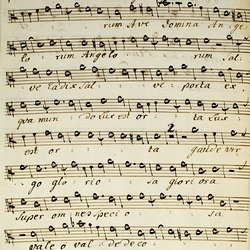 rum Ave Domina Ange
lo rum Angelo rum sal
ve radix sal ve porta ex
qva mun do lux est or ta Lux
est or ta gaude vir
go glo rio sa glori o sa
super om nes specio sa
vale o val de deco